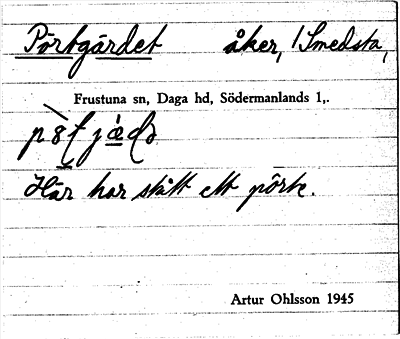 Pörtgärdet åker, 1 Smedsta,
Frustuna sn, Daga hd, Södermanlands l,.
Här har stått ett pörte.
Artur Ohlsson 1945